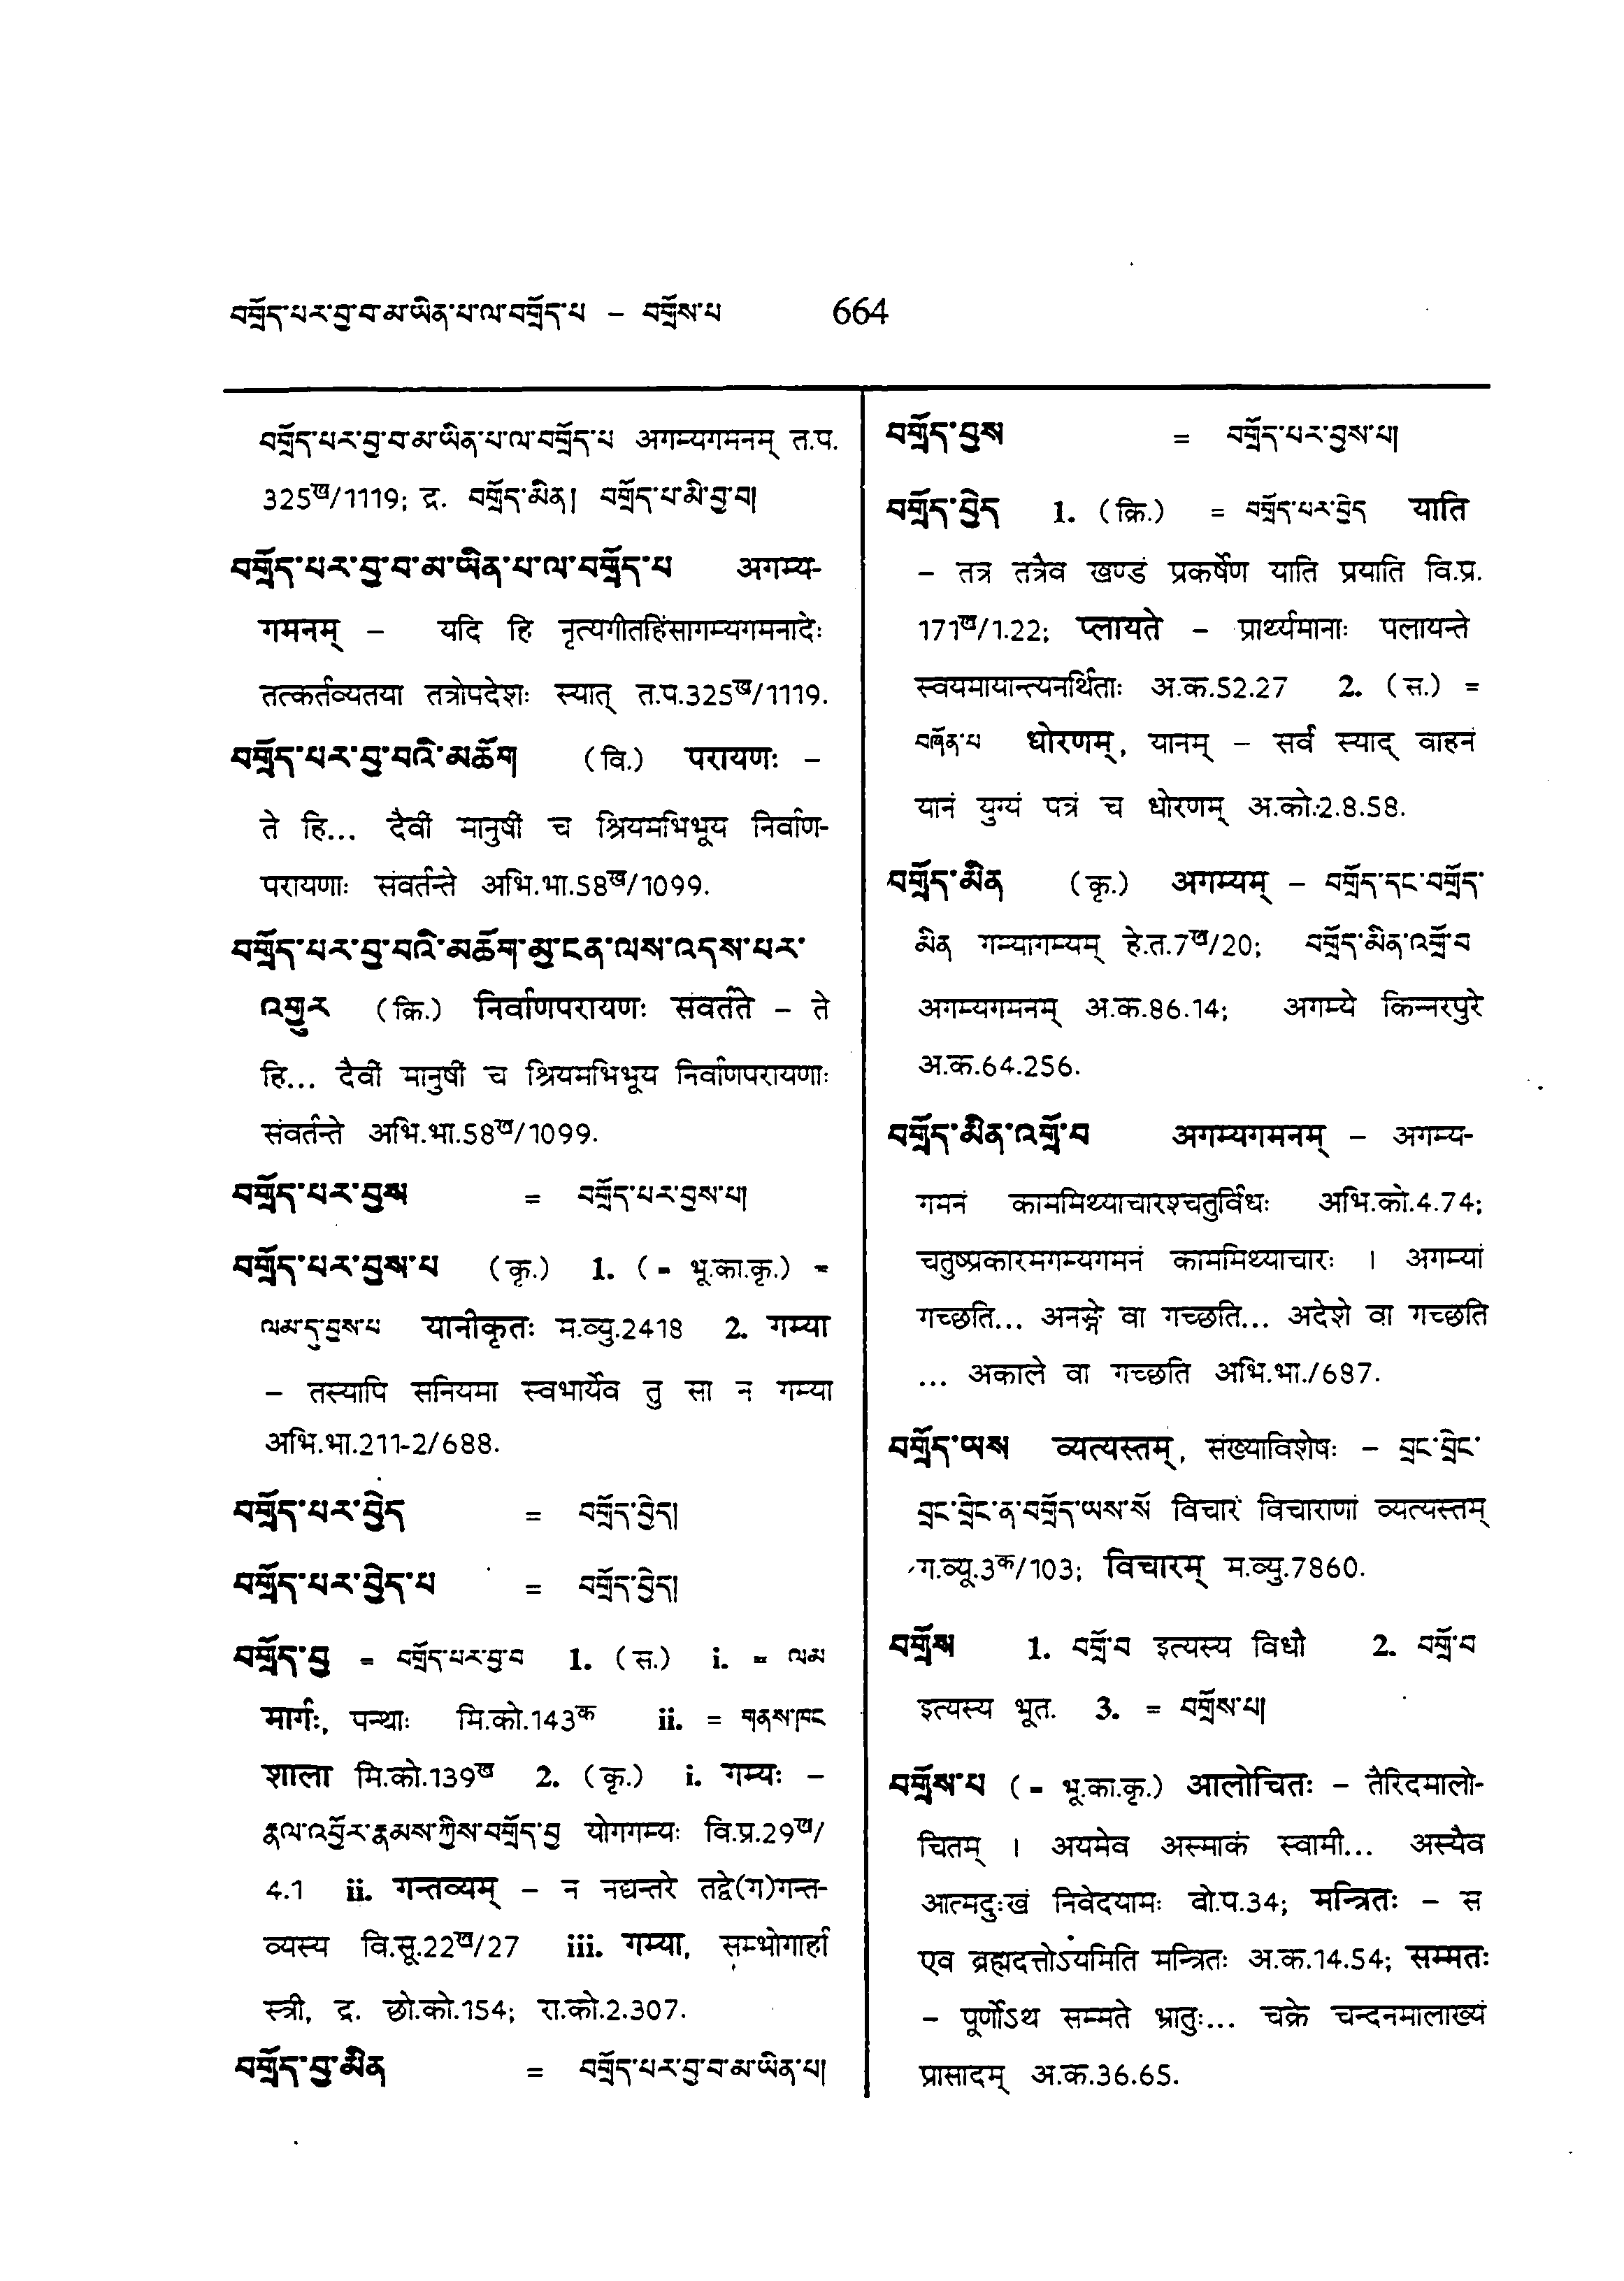 བགྲོད་པར་བྱ་བ་མ་ཡིན་པ་ལ་བགྲོད་པ – བགྲོས་པ 664
བགྲོད་པར་བྱ་བ་མ་ཡིན་པ་ལ་བགྲོད་པ अगम्यगमनम् त.प.
325ख/1119; द्र. བགྲོད་མིན། བགྲོད་པ་མི་བྱ་བ།
བགྲོད་པར་བྱ་བ་མ་ཡིན་པ་ལ་བགྲོད་པ अगम्य-
गमनम् – यदि हि नृत्यगीतहिंसागम्यगमनादेः
तत्कर्तव्यतया तत्रोपदेशः स्यात् त.प.325ख/1119.
བགྲོད་པར་བྱ་བའི་མཆོག (वि.) परायणः –
ते हि... दैवीं मानुषीं च श्रियमभिभूय निर्वाण-
परायणाः संवर्तन्ते अभि.भा.58ख/1099.
བགྲོད་པར་བྱ་བའི་མཆོག་མྱ་ངན་ལས་འདས་པར་
འགྱུར (क्रि.) निर्वाणपरायणः संवर्तते – ते
हि... दैवीं मानुषीं च श्रियमभिभूय निर्वाणपरायणाः
संवर्तन्ते अभि.भा.58ख/1099.
བགྲོད་པར་བྱས = བགྲོད་པར་བྱས་པ།
བགྲོད་པར་བྱས་པ (कृ.) 1. (- भू.का.कृ.) =
ལམ་དུ་བྱས་པ यानीकृतः म.व्यु.2418 2. गम्या
– तस्यापि सनियमा स्वभार्यैव तु सा न गम्या
अभि.भा.211-2/688.
བགྲོད་པར་བྱེད = བགྲོད་བྱེད།
བགྲོད་པར་བྱེད་པ = བགྲོད་བྱེད།
བགྲོད་བྱ = བགྲོད་པར་བྱ་བ 1. (स.) i. = ལམ
मार्गः, पन्थाः मि.को.143क ii. = གནས་ཁང
शाला मि.को.139ख 2. (कृ.) i. गम्यः –
རྣལ་འབྱོར་རྣམས་ཀྱིས་བགྲོད་བྱ योगगम्यः वि.प्र.29ख/
4.1 ii. गन्तव्यम् – न नद्यन्तरे तद्वे(ग)गन्त-
व्यस्य वि.सू.22ख/27 iii. गम्या, सम्भोगार्हा
स्त्री, द्र. छो.को.154; रा.को.2.307.
བགྲོད་བྱ་མིན = བགྲོད་པར་བྱ་བ་མ་ཡིན་པ།
བགྲོད་བྱས = བགྲོད་པར་བྱས་པ།
བགྲོད་བྱེད 1. (क्रि.) = བགྲོད་པར་བྱེད याति
– तत्र तत्रैव खण्डं प्रकर्षेण याति प्रयाति वि.प्र.
171ख/1.22; प्लायते – प्रार्थ्यमानाः पलायन्ते
स्वयमायान्त्यनर्थिताः अ.क.52.27 2. (स.) =
བཞོན་པ धोरणम्, यानम् – सर्वं स्याद् वाहनं
यानं युग्यं पत्रं च धोरणम् अ.को.2.8.58.
བགྲོད་མིན (कृ.) अगम्यम् – བགྲོད་དང་བགྲོད་
མིན गम्यागम्यम् हे.त.7ख/20; བགྲོད་མིན་འགྲོ་བ
अगम्यगमनम् अ.क.86.14; अगम्ये किन्नरपुरे
अ.क.64.256.
བགྲོད་མིན་འགྲོ་བ अगम्यगमनम् – अगम्य-
गमनं काममिथ्याचारश्चतुर्विधः अभि.को.4.74;
चतुष्प्रकारमगम्यगमनं काममिथ्याचारः । अगम्यां
गच्छति... अनङ्गे वा गच्छति... अदेशे वा गच्छति
... अकाले वा गच्छति अभि.भा./687.
བགྲོད་ཡས व्यत्यस्तम्, संख्याविशेषः – བྲང་བྲེང་
བྲང་བྲེང་ན་བགྲོད་ཡས་སོ विचारं विचाराणां व्यत्यस्तम्
ग.व्यू.3क/103; विचारम् म.व्यु.7860.
བགྲོས 1. བགྲོ་བ इत्यस्य विधौ 2. བགྲོ་བ
इत्यस्य भूत. 3. = བགྲོས་པ།
བགྲོས་པ (- भू.का.कृ.) आलोचितः – तैरिदमालो-
चितम् । अयमेव अस्माकं स्वामी... अस्यैव
आत्मदुःखं निवेदयामः बो.प.34; मन्त्रितः – स
एव ब्रह्मदत्तोऽयमिति मन्त्रितः अ.क.14.54; सम्मतः
– पूर्णोऽथ सम्मते भ्रातुः... चक्रे चन्दनमालाख्यं
प्रासादम् अ.क.36.65.